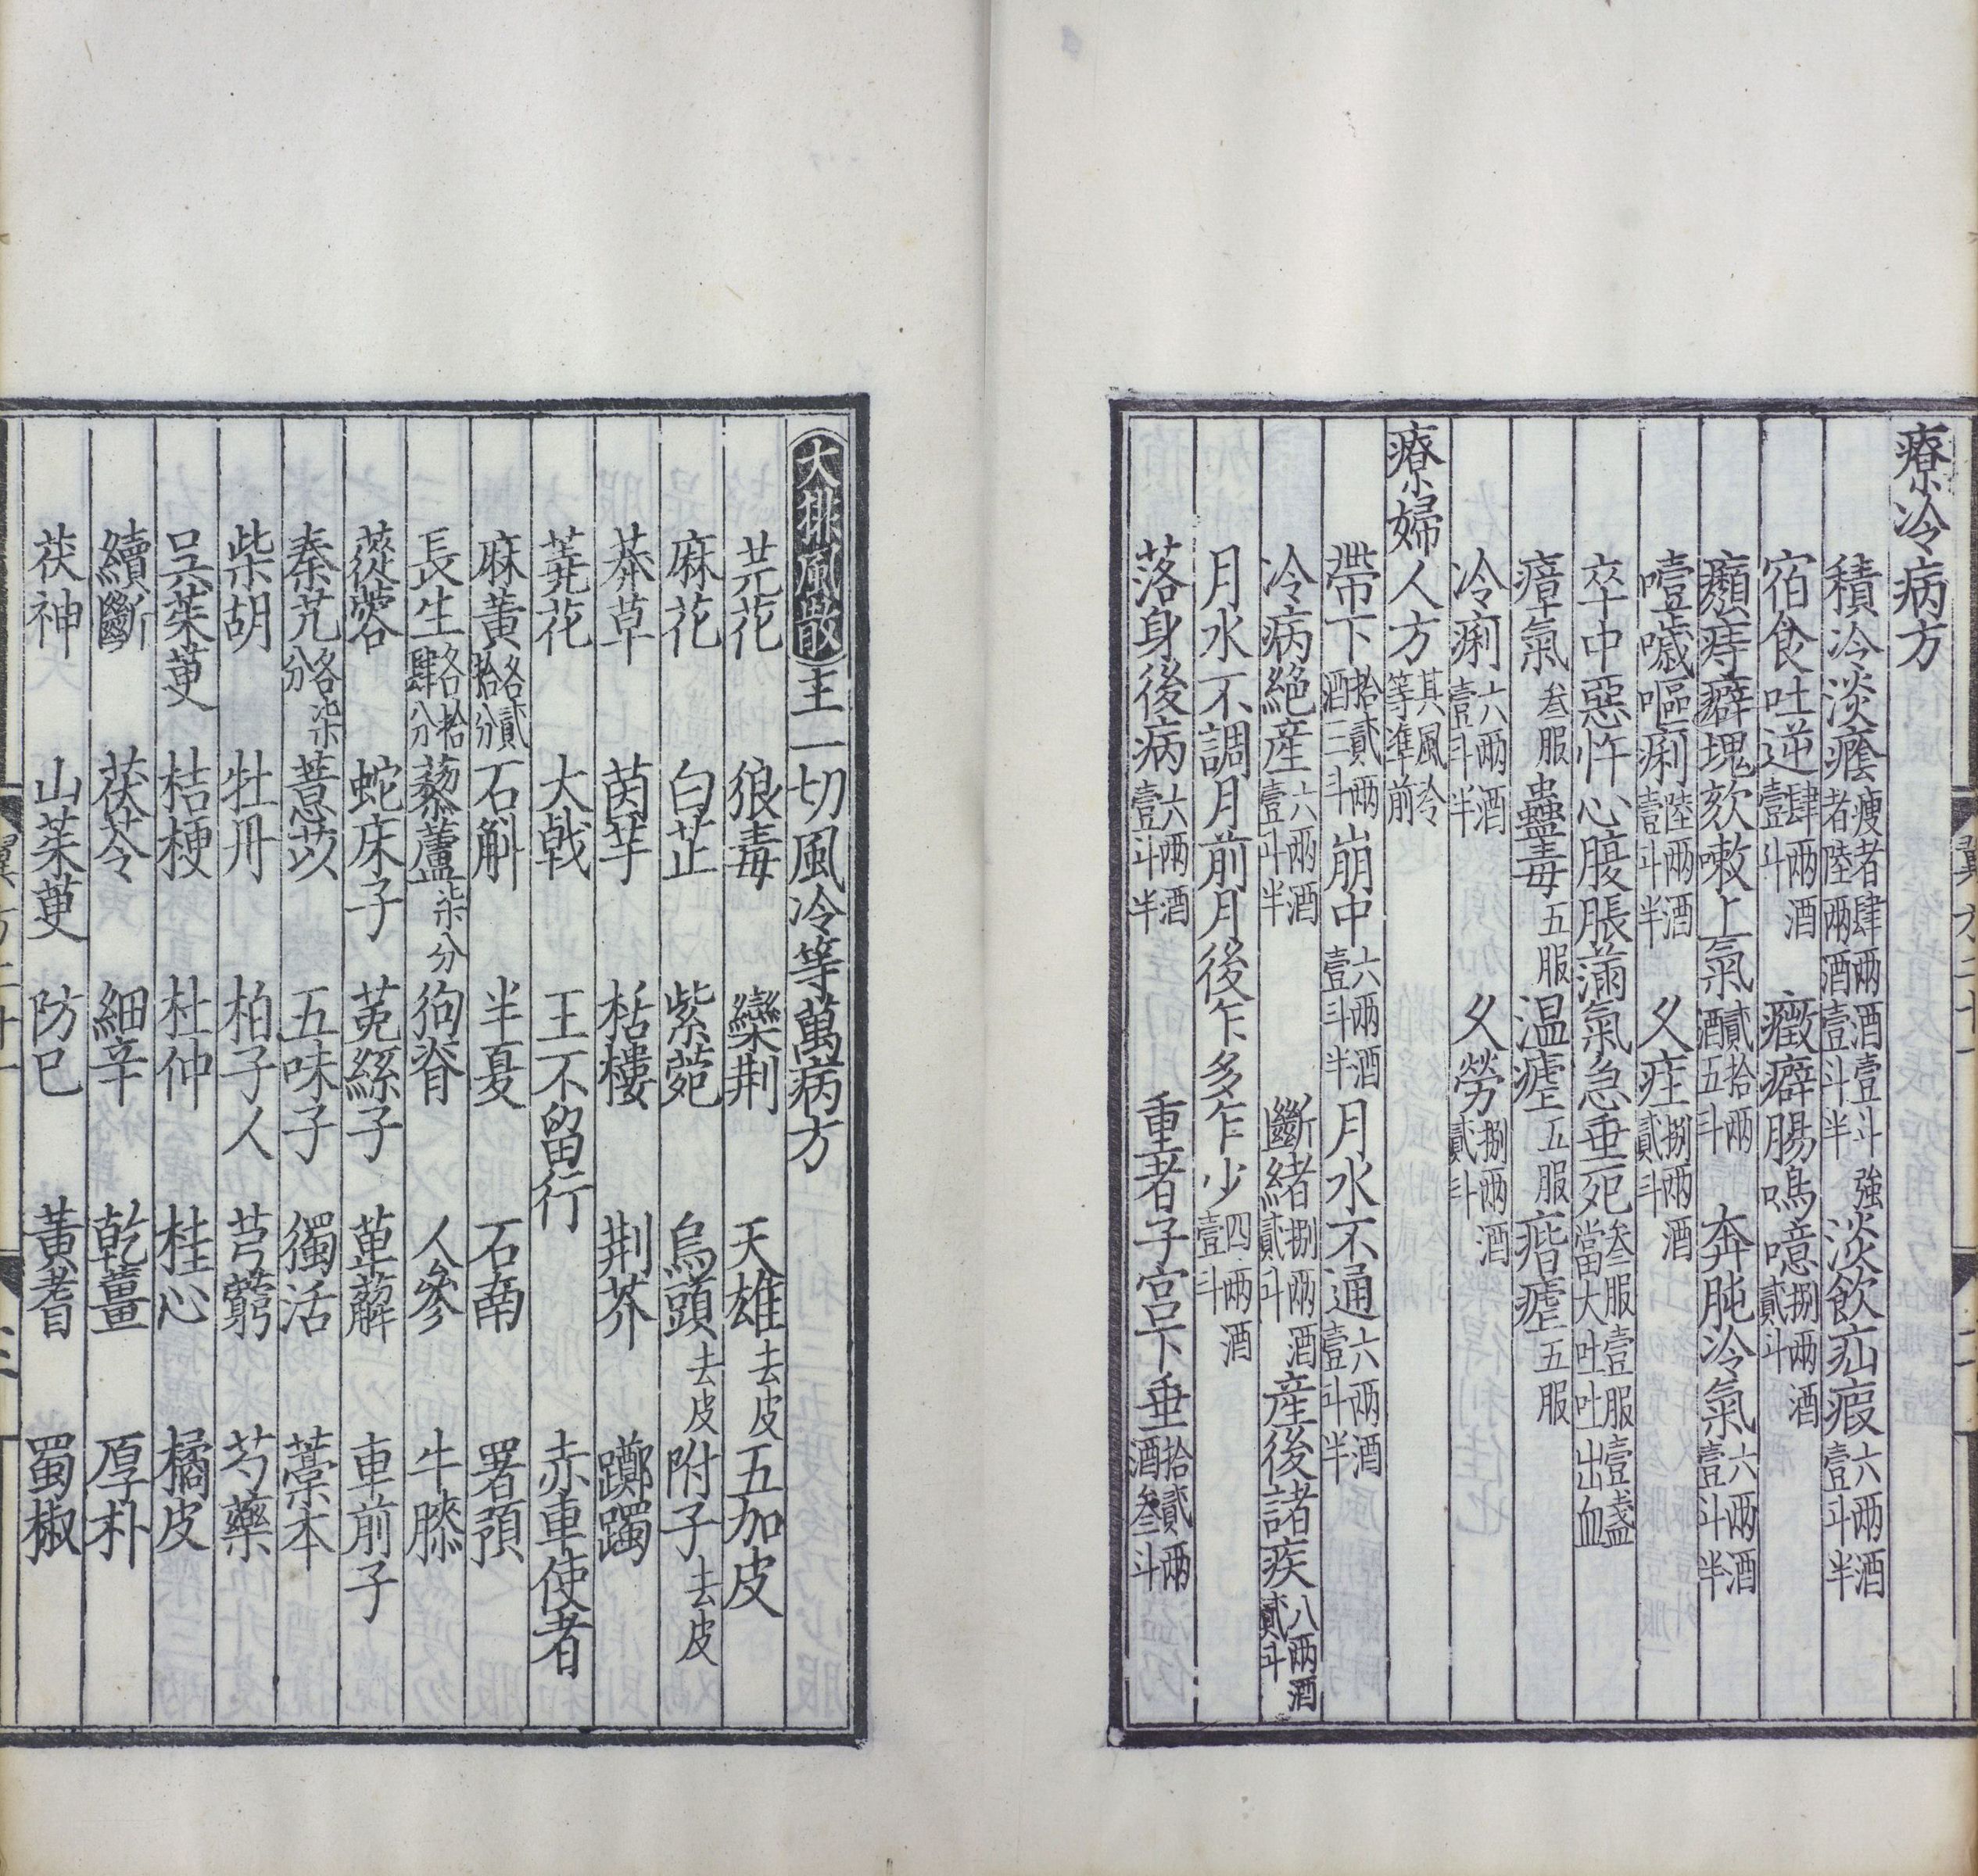 療冷病方
積冷淡癊瘦者肆兩酒壹斗強者陸兩酒壹斗半淡飲疝瘕六兩酒壹斗半
宿食吐逆肆兩酒壹斗癥癖腸鳴噫捌兩酒貳斗
癩痔癖塊欬嗽上氣貳拾兩酒五斗奔肫冷氣六兩酒壹斗半
噎噦嘔痢陸兩酒壹斗半久疰捌兩酒貳斗
卒中惡忤心腹脹滿氣急垂死叁服壹服壹盞當大吐吐出血
瘴氣叁服蠱毒五服温瘧五服痎瘧五服
冷痢六兩酒壹斗半久勞捌兩酒貳斗
療婦人方其風冷等準前
帶下拾貳兩酒三斗崩中六兩酒壹斗半月水不通六兩酒壹斗半
冷病絕産六兩酒壹斗半斷緒捌兩酒貳斗産後諸疾八兩酒貳斗
月水不調月前月後乍多乍少四兩酒壹斗
落身後病六兩酒壹斗半重者子宫下垂拾貳兩酒叁斗
大排風散主一切風冷等萬病方
芫花 狼毒 欒荆 天雄去皮 五加皮
麻花 白芷 紫菀 烏頭去皮 附子去皮
莽草 茵芋 栝樓 荆芥 躑躅
蕘花 大戟 王不留行 赤車使者
麻黄各貳拾分 石斛 半夏 石南 署預
長生各拾肆分 藜蘆柒分 狗脊 人參 牛膝
蓯蓉 蛇床子 菟絲子 萆薢 車前子
秦艽各柒分 薏苡 五味子 獨活 藁本
柴胡 牡丹 柏子人 芎藭 芍藥
吴茱萸 桔梗 杜仲 桂心 橘皮
續斷 茯苓 細辛 乾薑 厚朴
茯神 山茱萸 防巳 黄耆 蜀椒